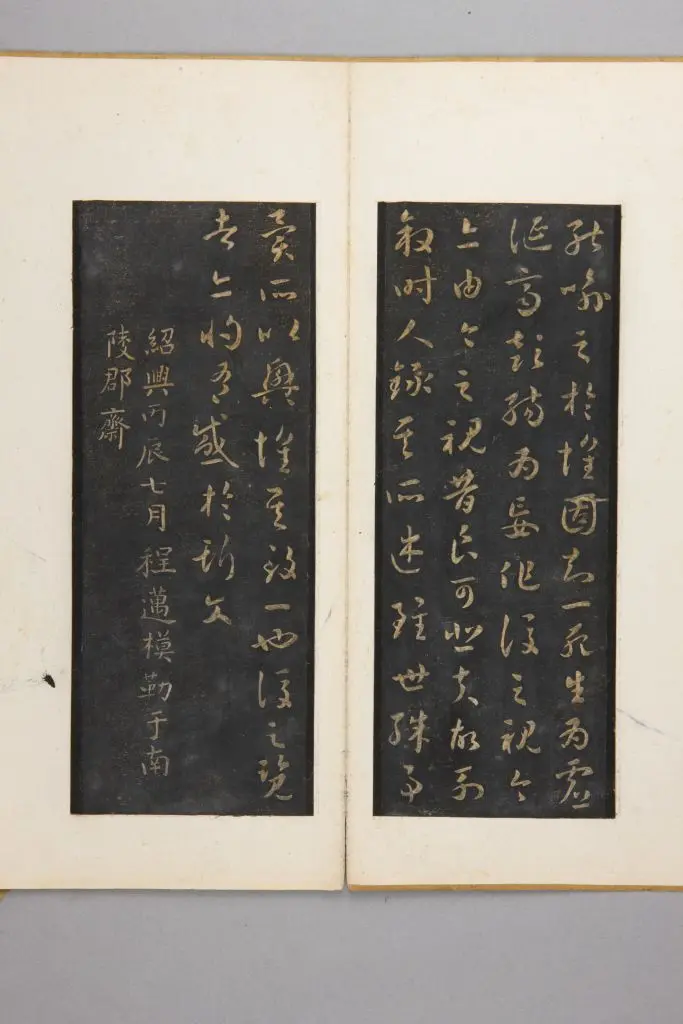 能喻之於懷固知一死生為虛
誕齊彭殤為妄作後之視今
亦由今之視昔良可悲夫故列
敘時人錄其所述雖世殊事
異所以興懷其致一也後之覽
者亦將有感於斯文
紹興丙辰七月程邁模勒于南
陵郡齋